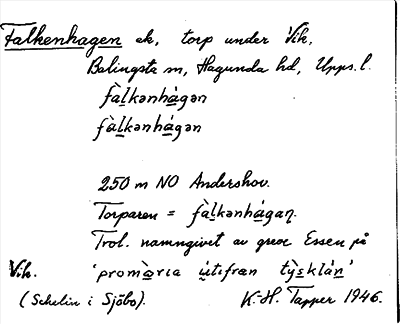 Falkenhagen ek, torp under Vik,
Balingsta sn, Hagunda hd, Upps. l.
fàḻkənhágən
fàḻkənhágən
250 m NO Andershov.
Torparen = fàḻkənhágaṇ.
Trol. namngivet av greve Essen på
Vik. 'promària útifrån tỳsklán'
(Schelin i Sjöbo). K.-H. Tapper 1946.